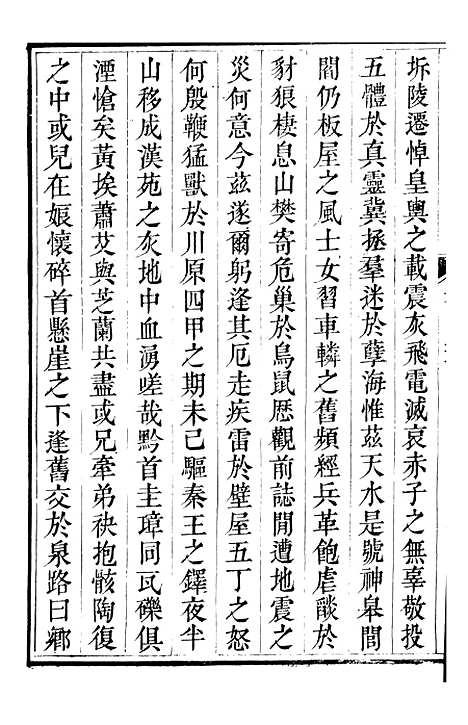 坼陵遷悼皇輿之載震灰飛電滅哀赤子之無辜敬投
五體於真靈冀拯羣迷於孽海惟茲天水是號神皋閭
閻仍板屋之風士女習車轔之舊頻經兵革飽虐燄於
豺狼棲息山樊寄危巢於鳥鼠歷觀前誌閒遭地震之
災何意今茲遂爾躬逢其厄走疾雷於壁屋五丁之怒
何殷鞭猛獸於川原四甲之期未已驅秦王之鐸夜半
山移成漢苑之灰地中血湧嗟哉黔首圭璋同瓦礫俱
湮愴矣黃埃蕭艾與芝蘭共盡或兄牽弟袂抱骸陶復
之中或兒在娘懷碎首懸崖之下逢舊交於泉路曰鄉